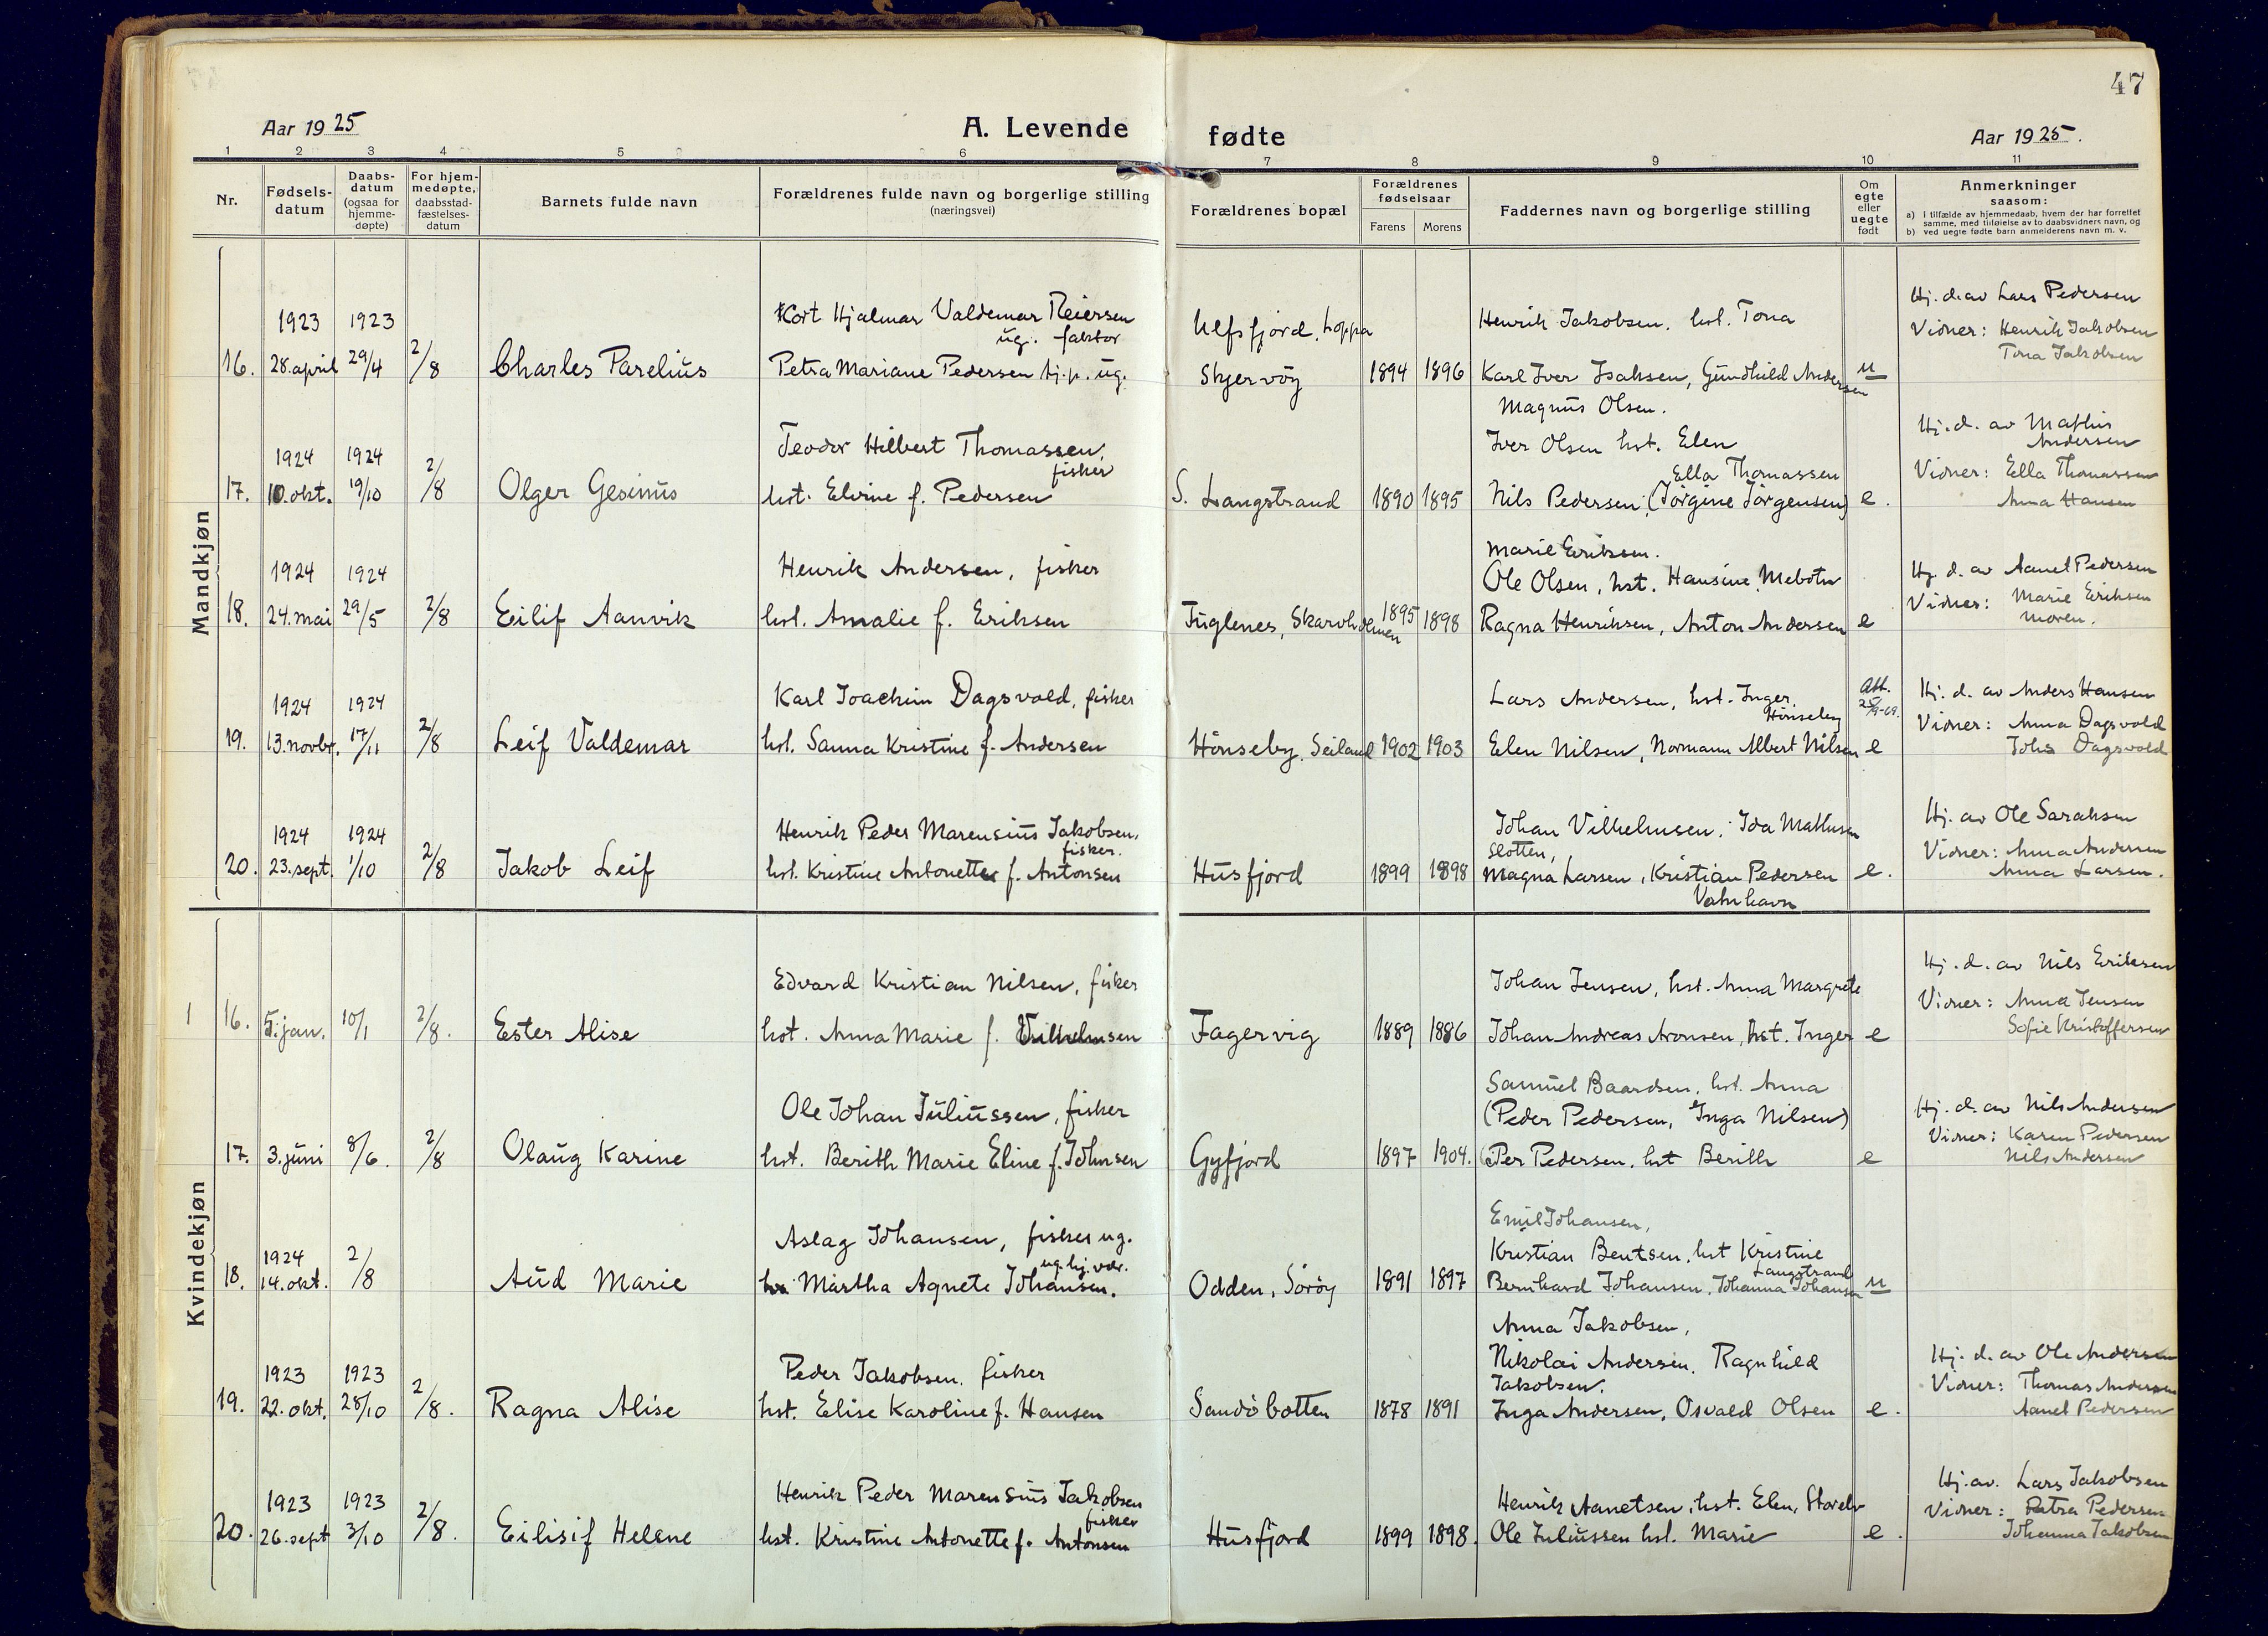 47
Aar 1925
A. Levende fødte
Aar 1925.
1 2 3 4 5 6 7 8 9 10 11
Nr.
Fødsels-
datum
Daabs-
datum
(ogsaa for
hjemme-
døpte)
For hjem-
medøpte,
daabsstad-
fæstelses-
datum
Barnets fulde navn
Forældrenes fulde navn og borgerlige stilling
(næringsvei)
Forældrenes bopæl
Forældrenes
fødselsaar
Farens Morens
Faddernes navn og borgerlige stilling
Om
egte
eller
uegte
født
Anmerkninger
saasom:
a) i tilfælde av hjemmedaab, hvem der har forrettet
samme, med tilføielse av to daabsvidners navn, og
b) ved uegte fødte barn anmelderens navn m. v.
Mandkjøn
16.
1923
28. april
1923
29/4
2/8
Charles Parelius
Kort Hjalmar Valdemar Reiersen
ug. faktor
Petra Mariane Pedersen hj.p. ug.
Ulfsfjord, Loppa
Skjervöy
1894 1896
Henrik Jakobsen, hst. Tona
Karl Iver Isaksen, Gundhild Andersen
Magnus Olsen.
u
Hj. d. av Lars Pedersen
Vidner: Henrik Jakobsen
Tona Jakobsen
17.
1924
10. okt.
1924
19/10
2/8
Olger Gesinus
Teodor Hilbert Thomassen,
fisker
hst. Elvine f. Pedersen
S. Langstrand
1890 1895
Iver Olsen hst. Elen
Ella Thomassen
Nils Pedersen, (Jörgine Jörgensen)
e.
Hj. d. av Mathis
Andersen
Vidner: Ella Thomassen
Anna Hansen
18.
1924
24. mai
1924
29/5
2/8
Eilif Aanvik
Henrik Andersen, fisker
hst. Amalie f. Eriksen
Fuglenes, Skarvholmen
1895 1898
Marie Eriksen.
Ole Olsen, hst. Hansine, Mebotn
Ragna Henriksen, Anton Andersen
e
Hj. d. av Aanet Pedersen
Vidner: Marie Eriksen
Moren.
19.
1924
13. novbr.
1924
17/11
2/8
Leif Valdemar
Karl Joachim Dagsvold, fisker
hst. Sanna Kristine f. Andersen
Hönseby, Seiland
1902 1903
Lars Andersen, hst. Inger,
Hönseby
Elen Nilsen, Normann Albert Nilsen
Att.
e
Hj. d. av Anders Hansen
Vidner: Anna Dagsvold
Johs Dagsvold
20.
1924
23. sept.
1924
1/10
2/8
Jakob Leif
Henrik Peder Marensius Jakobsen,
fisker.
hst. Kristine Antonette f. Antonsen
Husfjord
1899 1898
Johan Vilhelmsen, Ida Mathisen
Slotten,
Magna Larsen, Kristian Pedersen
e.
Hj. av Ole Saraksen
Vidner: Anna Andersen
Anna Larsen.
Kvindekjøn
1
16.
5. jan.
10/1
2/8.
Ester Alise
Edvard Kristian Nilsen, fisker
hst. Anna Marie f. Vilhelmsen
Fagervig
1889 1886
Johan Jensen, hst. Anna Margrete
Johan Andreas Aronsen, hst. Inger
e
Hj. d. av Nils Eriksen
Vidner: Anna Jensen
Sofie Kristoffersen
17.
3. juni
8/6.
2/8
Olaug Karine
Ole Johan Juliussen, fisker
hst. Berith Marie Eline f. Johnsen
Gyfjord
1897 1904.
Samuel Baardsen, hst. Anna
(Peder Pedersen, Inga Nilsen)
Per Pedersen, hst Berith
e
Hj. d. av Nils Andersen
Vidner: Karen Pedersen
Nils Andersen
18.
1924
14. okt.
2/8
Aud Marie
Aslag Johansen, fisker ug.
Martha Agnete Johansen.
Odden, Söröy
1891 1897
Emil Johansen,
Kristian Bentsen, hst Kristine
Langstrand
Bernhard Johansen, Johanna Johansen
u
19.
1923
22. okt.
1923
28/10
2/8.
Ragna Alise
Peder Jakobsen, fisker
hst. Elise Karoline f. Hansen
Sandöbotten
1878 1891
Anna Jakobsen,
Nikolai Andersen, Ragnhild
Jakobsen.
Inga Andersen, Osvald Olsen
e.
Hj. d. av Ole Andersen
Vidner: Thomas Andersen
Aanet Pedersen
20.
1923
26. sept
1923
3/10
2/8.
Eilisif Helene
Henrik Peder Marensius Jakobsen
fisker
hst. Kristine Antonette f. Antonsen
Husfjord
1899 1898.
Henrik Aanetsen, hst. Elen, Storelv
Ole Juliussen hst. Marie
e.
Hj. av. Lars Jakobsen
Vidner: Petra Pedersen
Johanna Jakobsen